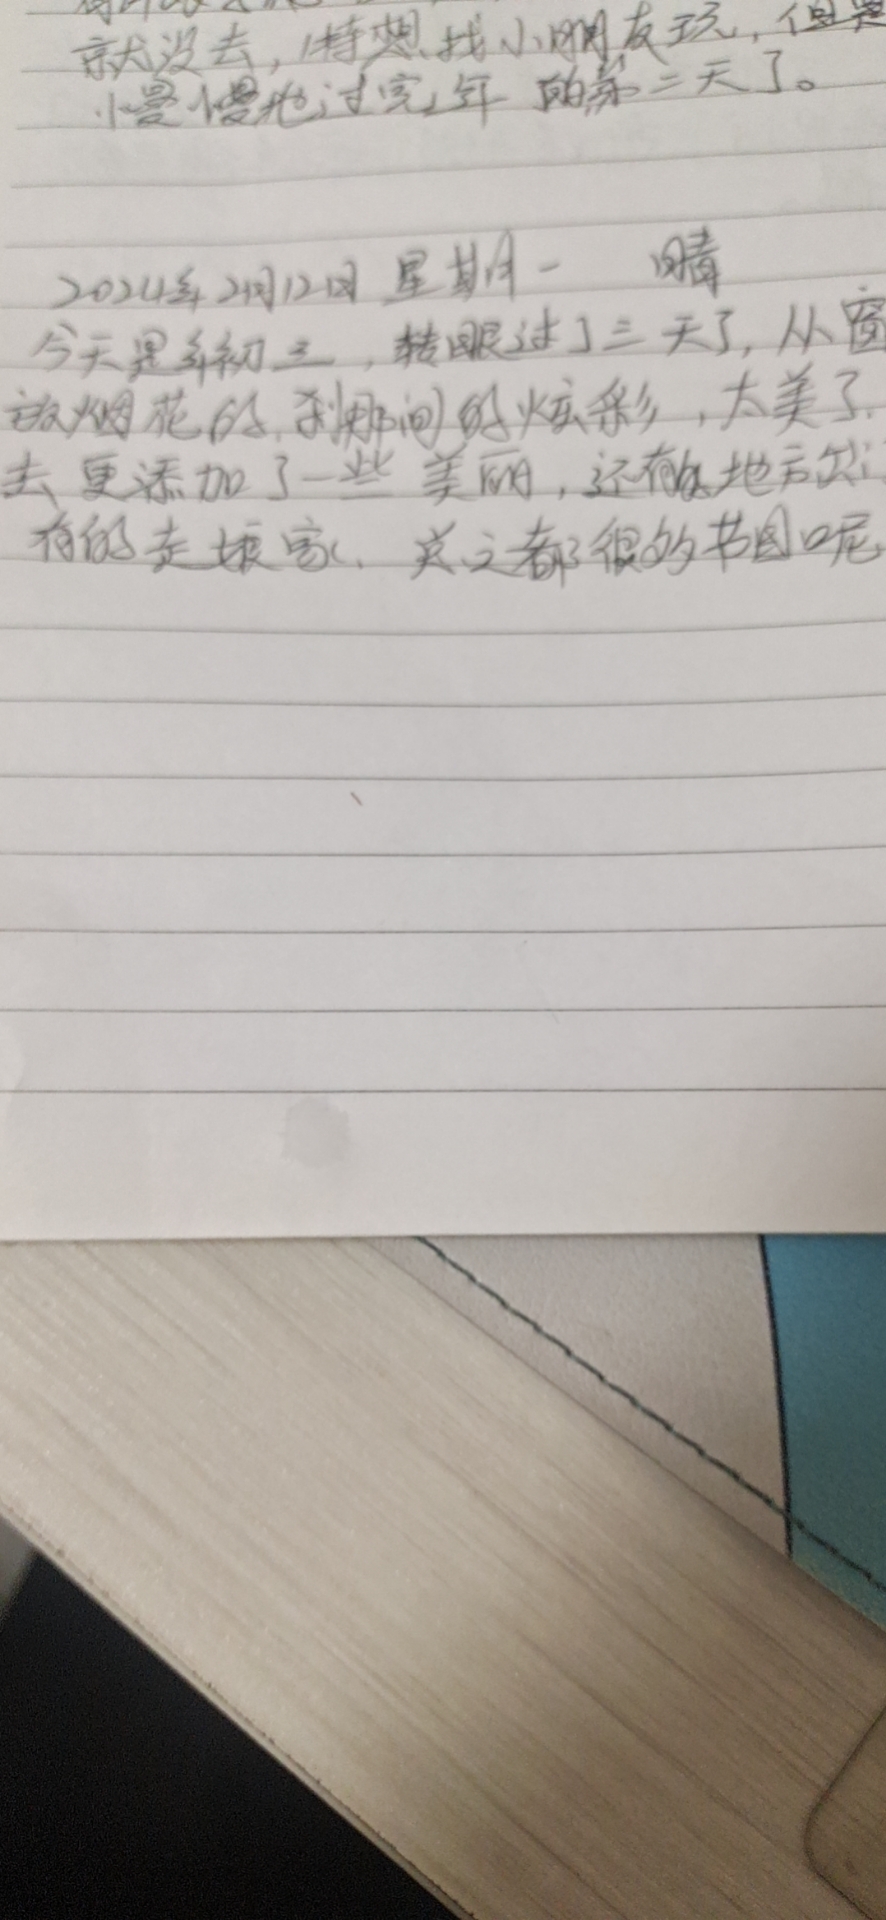 就没去,特想找小朋友玩,但是
慢慢地过完年的第二天了。
2024年2月12日 星期一 晴
今天是年初三,转眼过了三天了,从窗
放烟花的,刹那间的炫彩,太美了,
去更添加了一些美丽,还有的地方
有的走娘家、总之都很的节目呢